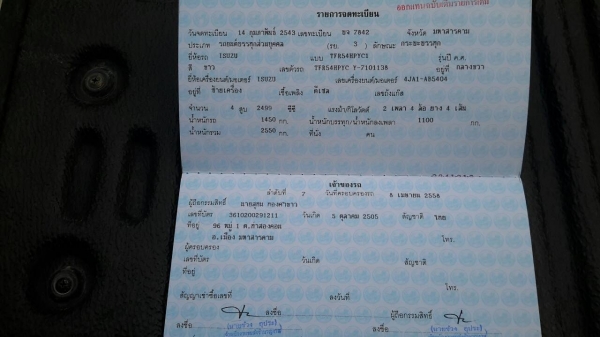 ออกแทนฉบับเดิมรายการเต็ม
รายการจดทะเบียน
วันจดทะเบียน 14 กุมภาพันธ์ 2543 เลขทะเบียน 7842 จังหวัด มหาสารคาม
ประเภท รถยนต์บรรทุกส่วนบุคคล (รย. 3 ) ลักษณะ กระบะบรรทุก
ยี่ห้อรถ ISUZU แบบ TFR54HPYC1 รุ่นปี ค.ศ.
สี ขาว เลขตัวรถ อยู่ที่ กลางขวา
ยี่ห้อเครื่องยนต์/มอเตอร์ ISUZU เลขเครื่องยนต์/มอเตอร์ 4JA1-AB5404
อยู่ที่ ซ้ายเครื่อง เชื้อเพลิง ดีเซล เลขถังแก๊ส
จำนวน 4 สูบ 2499 ซีซี แรงม้า/กิโลวัตต์ 2 เพลา 4 ล้อ ยาง 4 เส้น
น้ำหนักรถ 1450 กก. น้ำหนักบรรทุก/น้ำหนักลงเพลา 1100 กก.
น้ำหนักรวม 2550 กก. ที่นั่ง คน
เจ้าของรถ
ลำดับที่ 7 วันที่ครอบครองรถ 8 เมษายน 2556
ผู้ถือกรรมสิทธิ์
เลขที่บัตร 3610200291211 วันเกิด 5 ตุลาคม 2505 สัญชาติ ไทย
ที่อยู่ 96 หมู่ 1 ต.ท่าสองคอน
อ.เมือง มหาสารคาม โทร.
ผู้ครอบครอง
เลขที่บัตร วันเกิด สัญชาติ
ที่อยู่
โทร.
สัญญาเช่าซื้อเลขที่ ลงวันที่
ลงชื่อ ผู้ถือกรรมสิทธิ์
ลงชื่อ ลงชื่อ